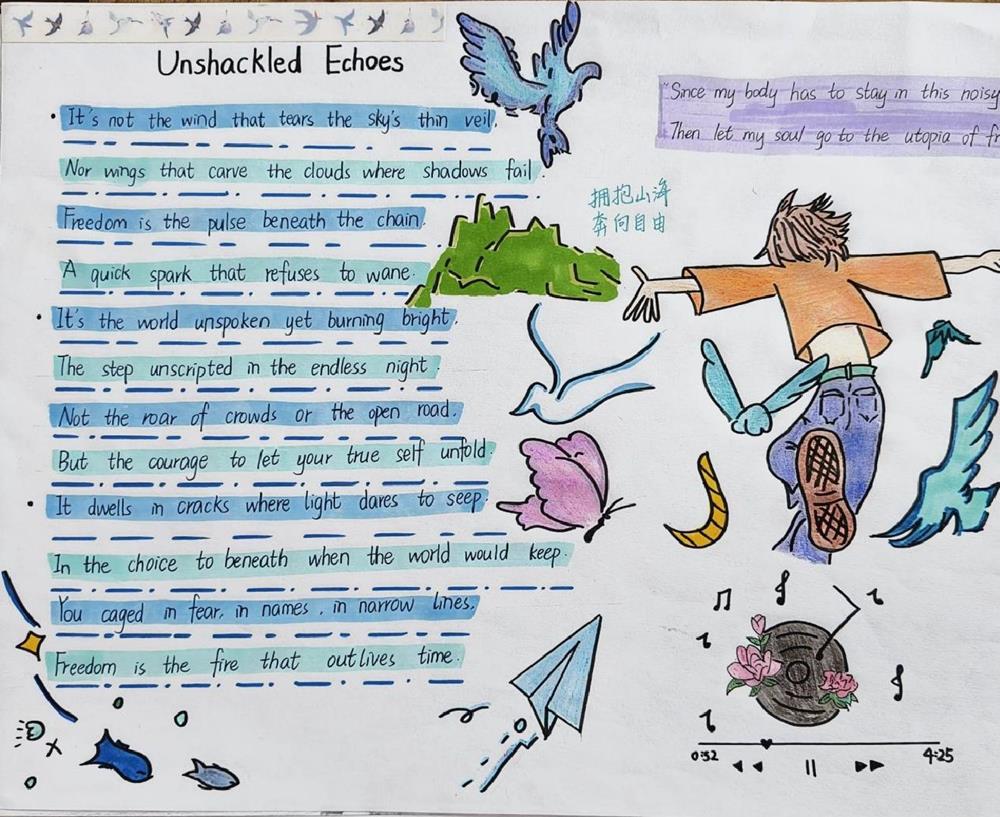 Unshackled Echoes
It's not the wind that tears the sky's thin veil,
Nor wings that carve the clouds where shadows fail
Freedom is the pulse beneath the chain.
A quick spark that refuses to wane.
It's the world unspoken yet burning bright.
The step unscripted in the endless night.
Not the roar of crowds or the open road.
But the courage to let your true self unfold.
It dwells in cracks where light dares to seep.
In the choice to beneath when the world would keep.
You caged in fear, in names, in narrow lines.
Freedom is the fire that outlives time.
"Since my body has to stay in this noisy
Then let my soul go to the utopia of
拥抱山海
奔向自由
0:52
4:25